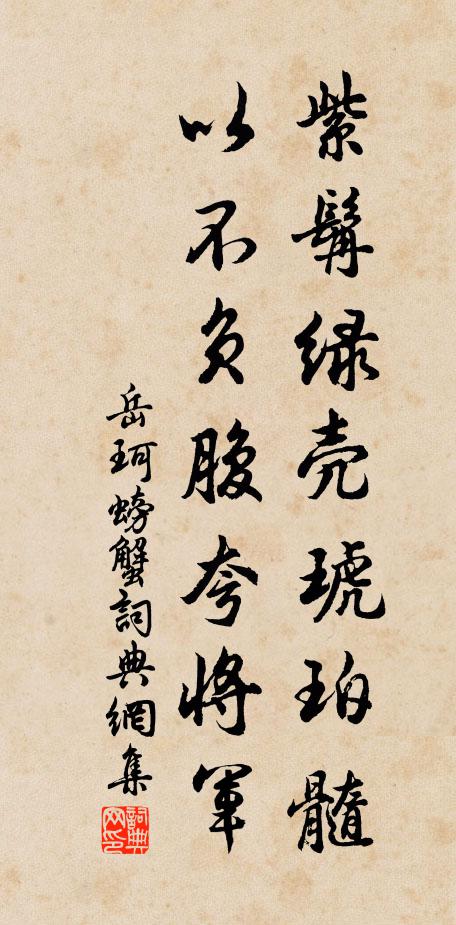 紫髯绿壳琥珀髓
以不负腹夸将军
岳珂螃蟹詞典網集
詞典
网印